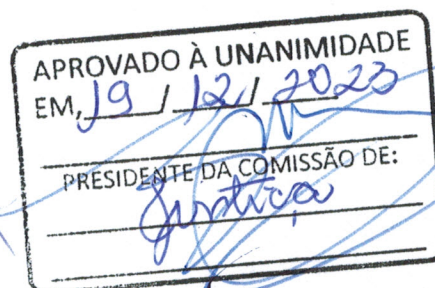 APROVADO À UNANIMIDADE
EM, 19 / 12 / 2023
PRESIDENTE DA COMISSÃO DE:
Justiça